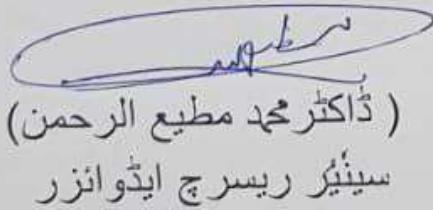 ( ڈاکٹر محمد مطیع الرحمن)
سینئیر ریسرچ ایڈوائزر